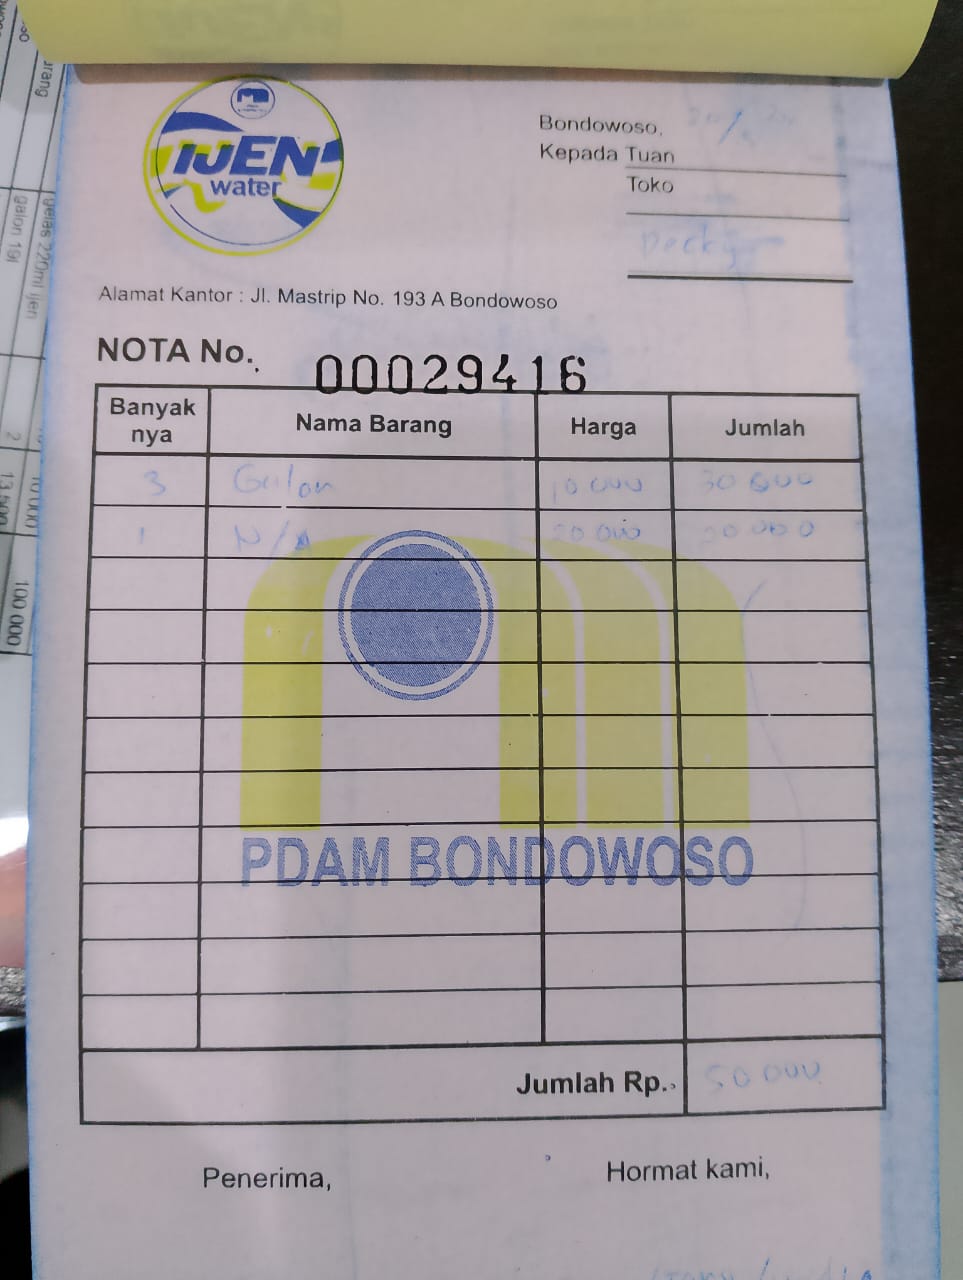 IJEN
water
Bondowoso,
Kepada Tuan
Toko
Decky
Alamat Kantor : Jl. Mastrip No. 193 A Bondowoso
NOTA No. 00029416
Banyak nya Nama Barang Harga Jumlah
3 Galon 10 000 30 000
1 N/A 20 000 20 000
PDAM BONDOWOSO
Jumlah Rp. 50 000
Penerima, Hormat kami,
arang
gelas 220ml ijen
galon 19l
2
10 000
13 500
100 000